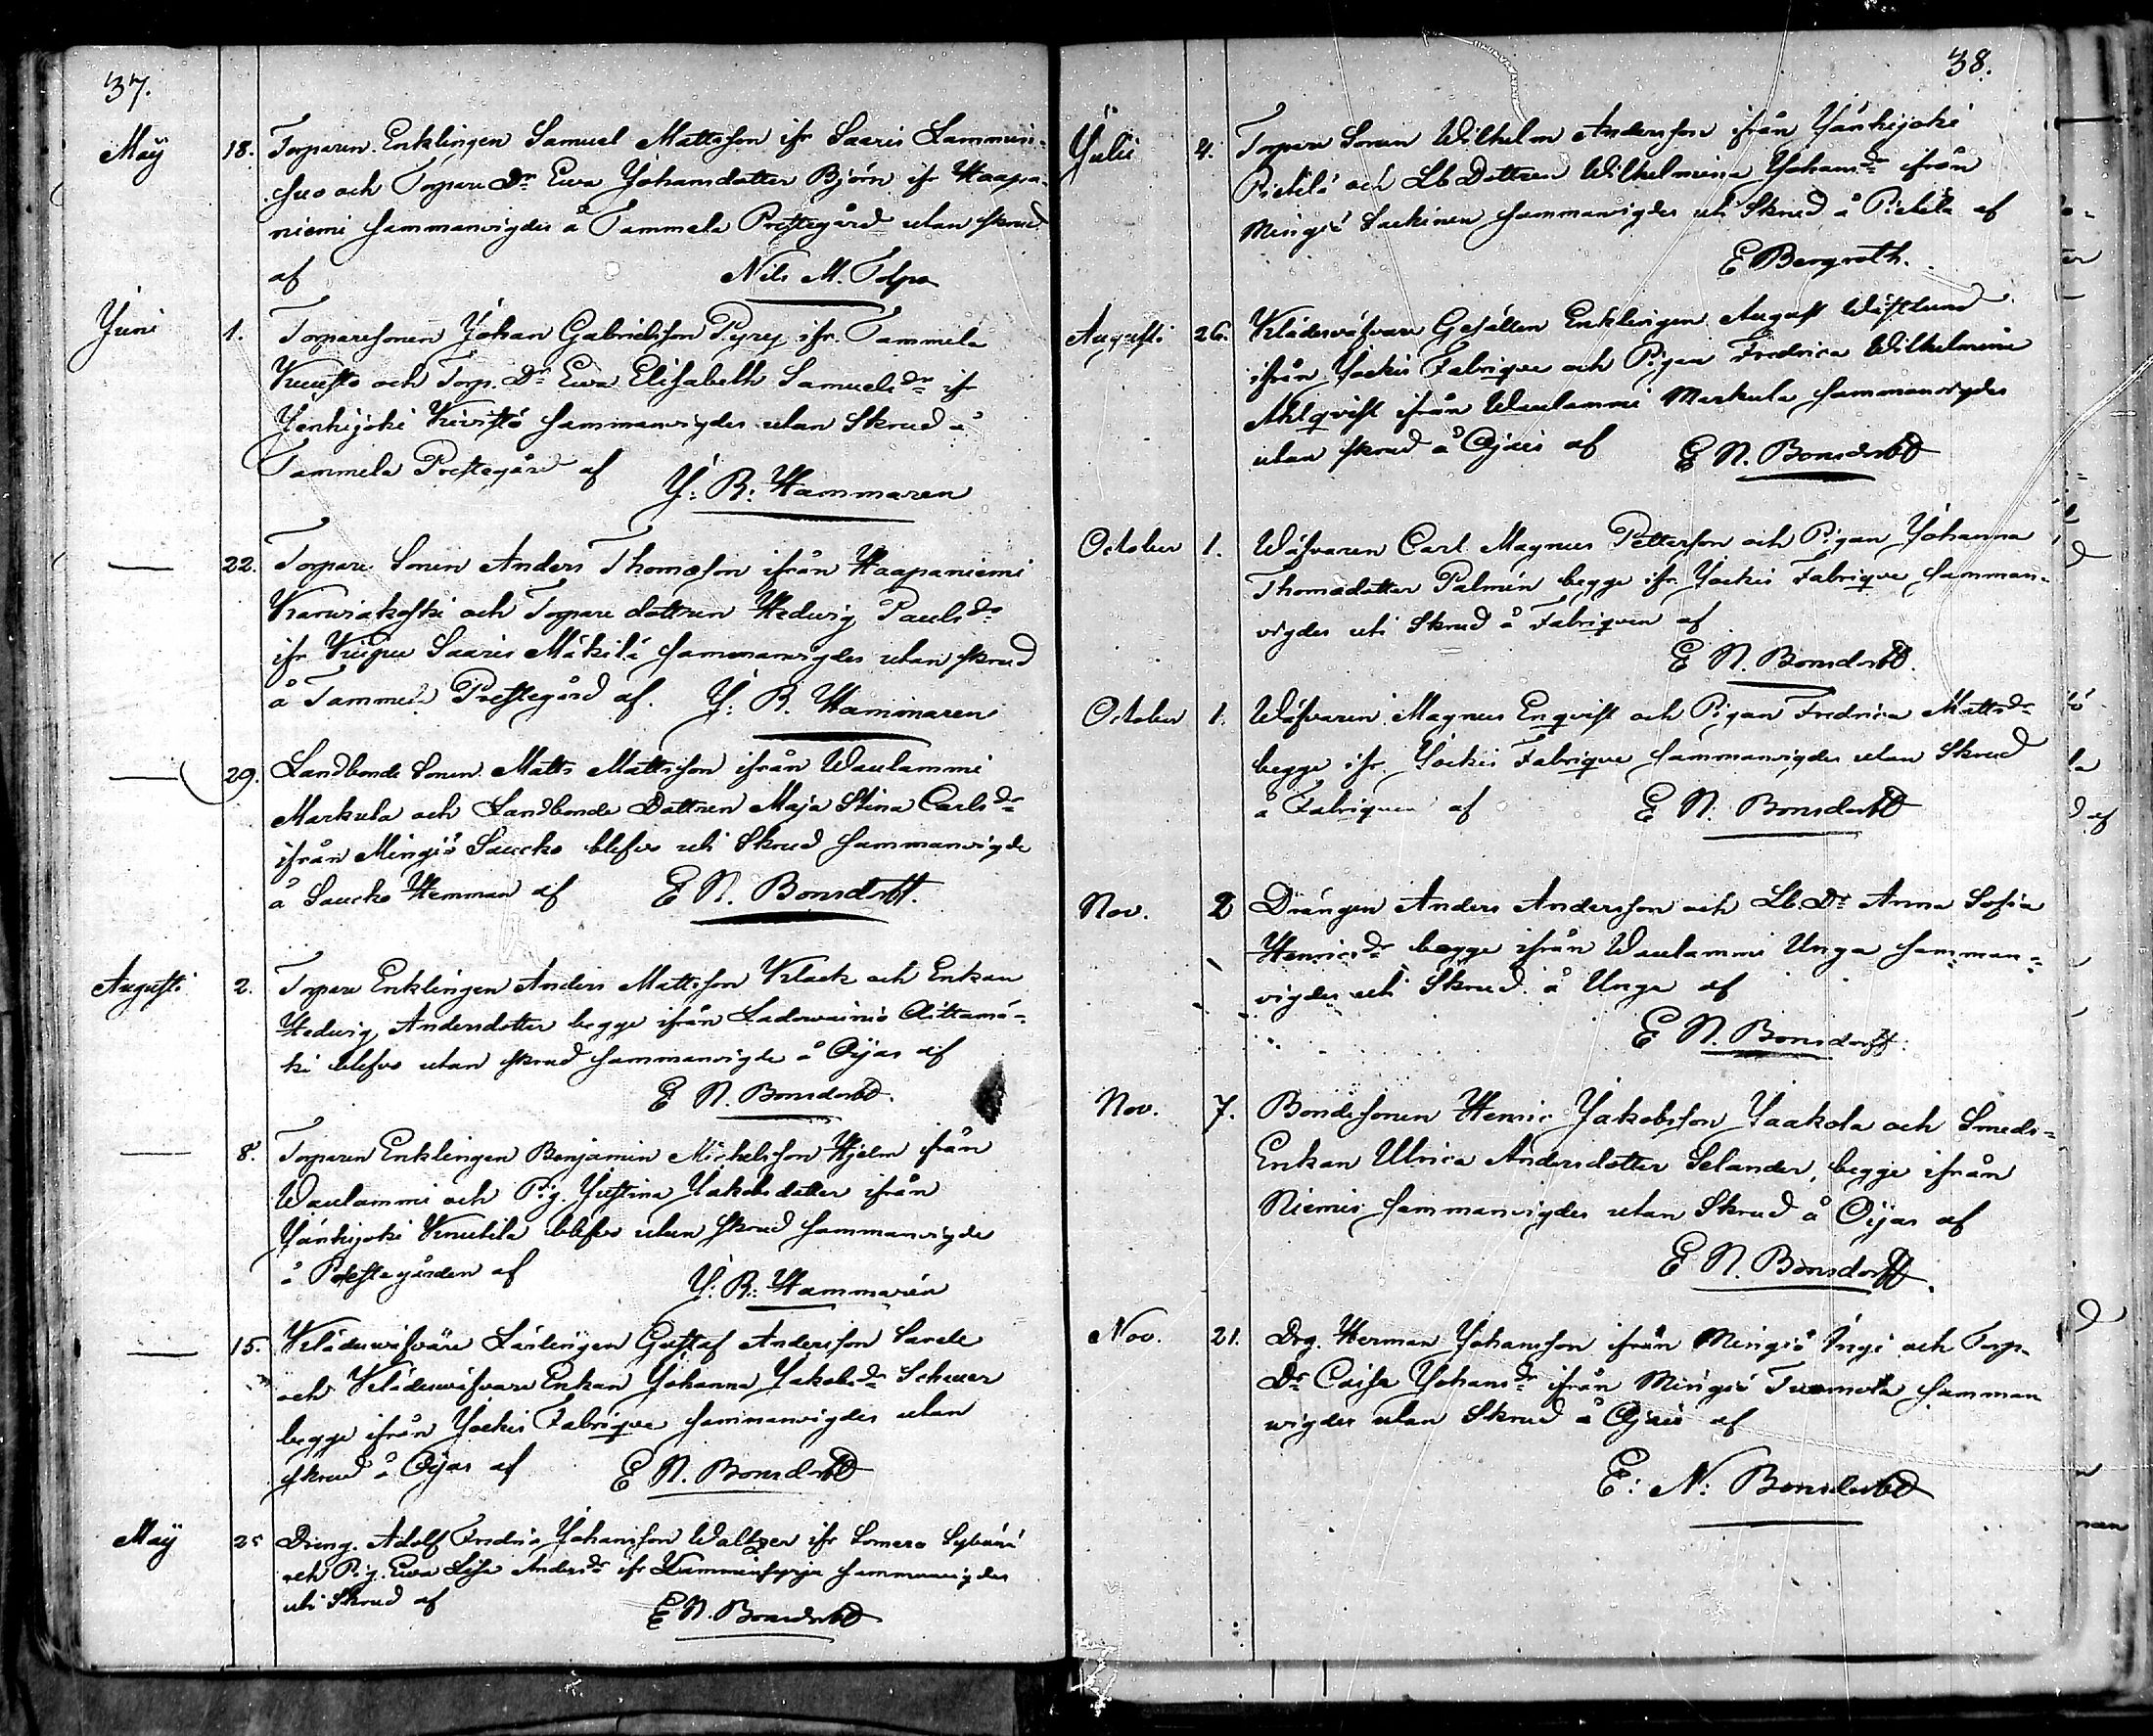 37.
Maÿ 18. Torparen Enklingen Samuel Mattsson ifr Saaris Lammin-
suo och Torpare Dr Ewa Johansdotter Björn ifr Haapa-
niemi sammanvigdes å Tammela Prestegård utan skrud
af Nils M. Tolpo
Juni 1. Torparesonen Johan Gabrielsson Pyry ifr. Tammela
Kuusto och Torp. Dr Ewa Elisabeth Samuelsdr ifr
Jänhijoki sammanvigdes utan Skrud å
Tammela Prestegård af
J: R: Hammaren
— 22. Torpare Sonen Anders Thomasson ifrån Haapaniemi
och Torpare dottren Hedwig Paulsdr
ifr Saaris Mäkilä sammanvigdes utan skrud
å Tammela Prestegård af. J: R. Hammaren
— 29. Landbonde Sonen Matts Mattsson ifrån Waulammi
Markula och Landbonde Dottren Maja Stina Carlsdr
ifrån Mingiö Saucko blefvo uti Skrud sammanvigde
å Saucko Hemman af E N. Bonsdorff.
Augusti 2. Torpare Enklingen Anders Mattsson Klack och Enkan
Hedwig Andersdotter begge ifrån
ki blefvo utan skrud sammanvigde å Ojjas af
E N. Bonsdorff.
— 8. Torparen Enklingen Benjamin Michelsson Hjelm ifrån
Waulammi och Pig. Justina Jakobsdotter ifrån
Jänhijoki Knutila blefvo utan skrud sammanvigde
å Prestegården af
J: R: Hammarén
— 15. Klädeswäfvare Lärlingen Gustaf Andersson
och Klädeswäfvare Enkan Johanna Jakobsdr
begge ifrån Jockis Fabrique sammanvigdes utan
skrud å Ojjas af E N. Bonsdorff
Maÿ 25 Dreng. Adolf Fredric Johansson Waltzer ifr Somero
och Pig. Ewa Lisa Andersdr ifr sammanvigdes
uti Skrud af
E N. Bonsdorff
38.
Julii 4. Torpare Sonen Wilhelm Andersson ifrån Jänhijoki
Pietilä och Lb Dottren Wilhelmina Johansdr ifrån
Mingiö sammanvigdes uti Skrud å Pietilä af
E Bergroth.
Augusti 26. Klädeswäfvare Gesällen Enklingen August Wästlund
ifrån Jockis Fabrique och Pigan Fredrica Wilhelmina
Ahlqvist ifrån Waulammi Markula sammanvigdes
utan skrud å Ojais af E N. Bonsdorff
October 1. Wäfvaren Carl Magnus Pettersson och Pigan Johanna
Thomasdotter Palmén begge ifr. Jockis Fabrique samman-
vigdes uti Skrud å Fabriquen af
E N. Bonsdorff.
October 1. Wäfvaren Magnus Enqvist och Pigan Fredrica Mattsdr
begge ifr. Jockis Fabrique sammanvigdes utan Skrud
å Fabriquen af E N. Bonsdorff
Nov. 2 Drängen Anders Andersson och Lb. Dr Anna Sofia
Henricsdr begge ifrån Waulammi Unga samman-
vigdes uti Skrud å Unga af
E N. Bonsdorff.
Nov. 7. Bondesonen Henric Jakobsson Jaakola och Smeds-
Enkan Ulrica Andersdotter Selander, begge ifrån
Niemis sammanvigdes utan Skrud å Ojjas af
E N. Bonsdorff.
Nov. 21. Drg. Herman Johansson ifrån Mingiö och Torp.
Dr Caisa Johansdr ifrån Mingiö Tuomola samman
vigdes utan Skrud å Ojais af
E: N: Bonsdorff